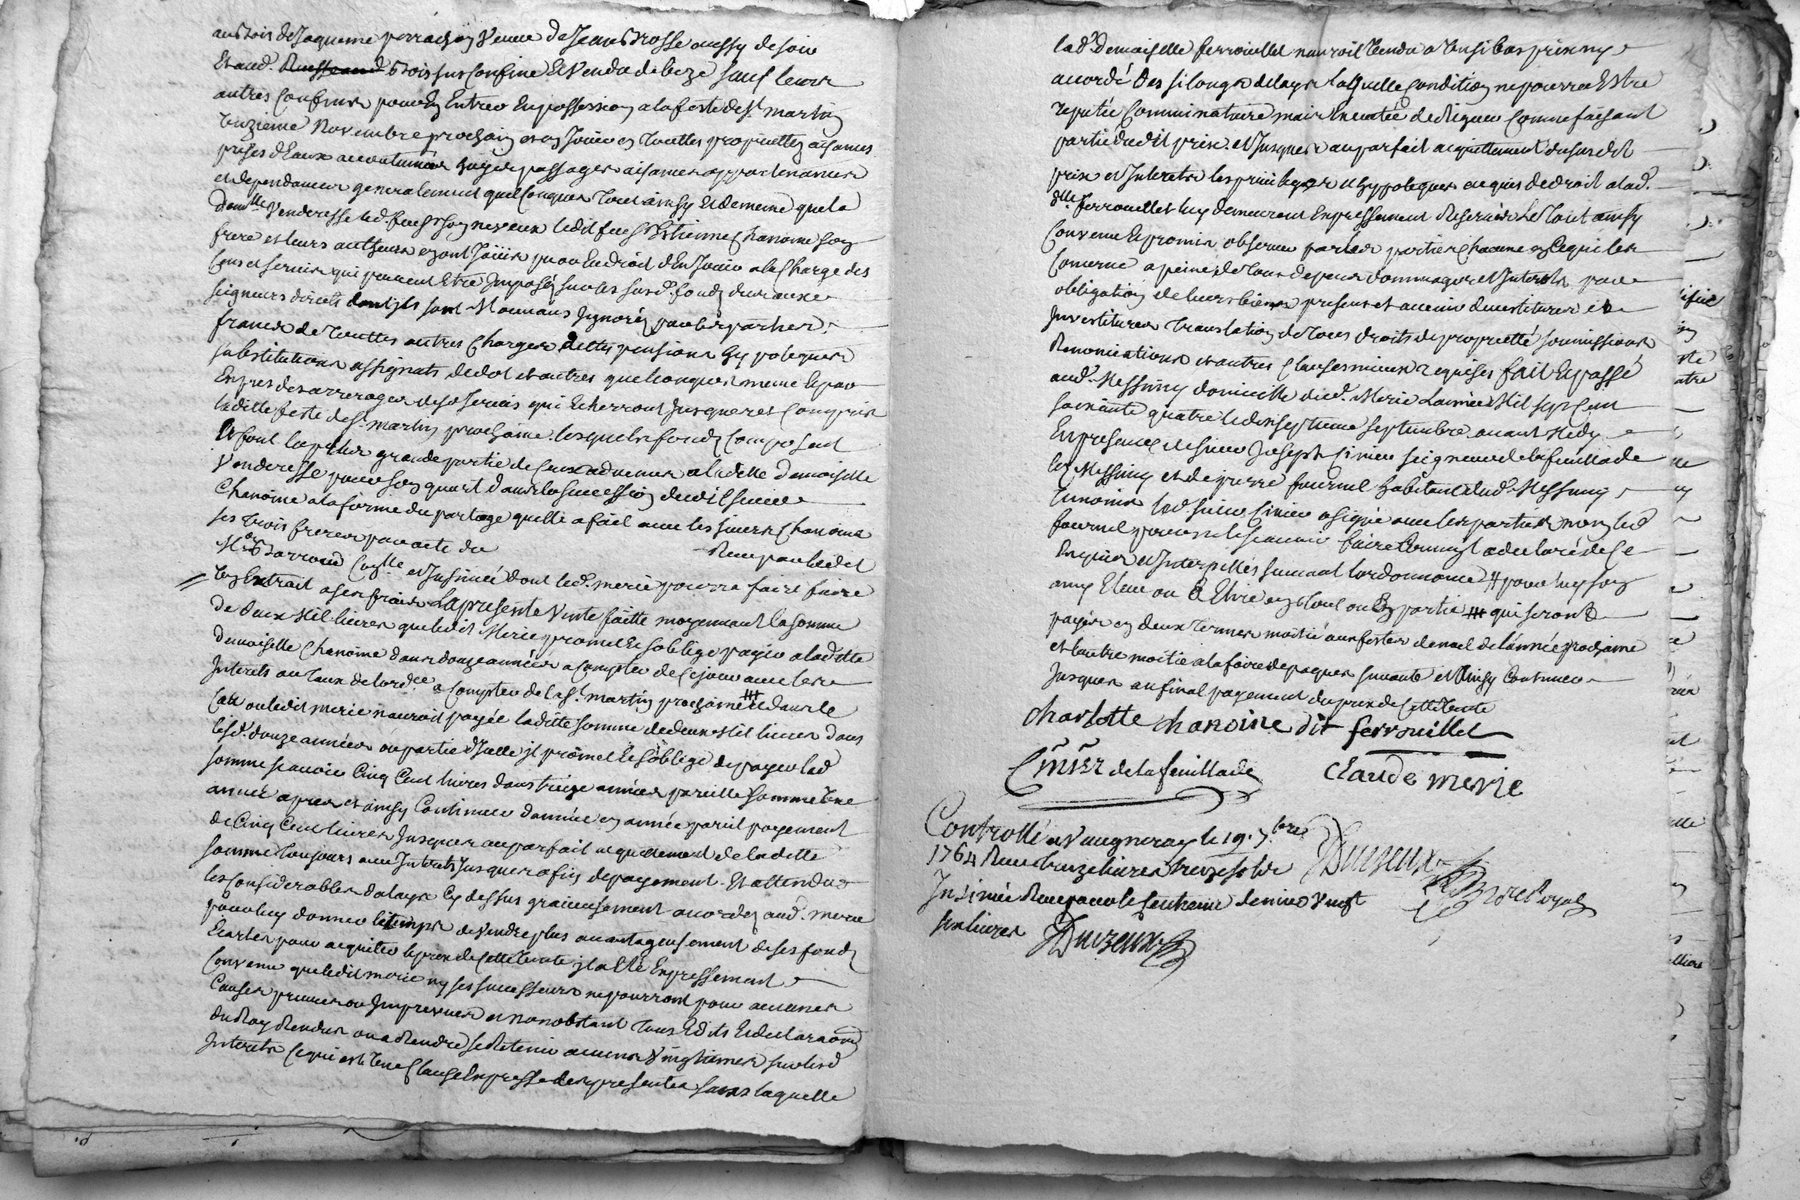 au bois de Jaqueme perrachon veuve de Jean Brosse aussy de soir
Et aud. bois sus confiné Et vendu de bize sauf leurs
autres confins pour En Entrer En possession a la feste de st. martin
onzieme Novembre prochain et en Jouir en touttes proprietté aisances
prises d'Eaux accoutumées passages aisances appartenances
et dependances generalement quelconques tout ainsy Et de meme que la
Dam.lle venderesse led. feu son neveux ledit feu s. Etienne Chanoine son
frere et leurs autheurs en ont Jöüir pu ou En droit d'En Jouir a la Charge des
Cens et servis qui peuvent Etre Imposés sur les susd. fonds Envers les
seigneurs directs dont ils sont Mouvans Ignorés par les parties
francs de touttes autres Charges dettes pensions hypoteques
substitutions assignats de dot et autres quelconques meme Le pas
Expres des arrerages desd. servis qui Echerront Jusques et Compris
laditte feste de st. martin prochaine lesquels fonds Composent
Et font la plus grande partie de Ceux advenus a laditte demoiselle
Venderesse pour son quart dans la succession dudit sieur
Chanoine a la forme du partage quelle a fait avec les sieurs Chanoine
ses trois freres par acte du
Reçu par ledit
Me Barroud et Insinué dont led. merie pourra faire faire
un Extrait a ses frais La presente Vente faitte moyennant la somme
de deux Mil livres que ledit Merie promet Et s'oblige payer a laditte
demoiselle Chanoine dans douze années a Compter de Ce jour avec les
Interets au taux de l'ord.ce a Compter de la st. martin prochaine Et dans le
Cas ou ledit merie n'auroit payée laditte somme de deux Mil livres dans
lesd. douze années ou partie d'Icelle il promet Et s'oblige de payer lad.
somme scavoir Cinq Cent livres dans treize années pareille somme une
année apres et ainsy Continuer d'année en année pareil payement
de Cinq Cent livres Jusques au parfait acquittement de laditte
somme toujours avec Interets Jusques a fin de payement. Et attendu
les Considerables delays Cy dessus gracieusement accordés aud. merie
pour luy donner le temps de vendre plus avantageusement de ses fonds
Ecartés pour acquitter le prix de Cette vente il a Eté Expressement
Convenu que ledit merie ny ses successeurs ne pourront pour aucunes
Causes prevues ou Imprevues et nonobstant tous Edits Et declarations
du Roy Rendus ou a Rendre se Retenir aucuns vingtiemes sur lesd.
Interets Ce qui est une Clause Expresse des presentes sans laquelle
lad. Demoiselle ferroüillet n'auroit vendu a un si bas prix ny
accordé des si longs delays laquelle Condition ne pourra Etre
reputée Comminatoire mais Executée de Rigueur Comme faisant
partie dudit prix et Jusques au parfait acquittement du susdit
prix et Interets les privileges et hypoteques acquis de droit a lad.
dlle ferroüillet luy demeurent Expressement Reservés Le tout ainsy
Convenu Et promis observer par les parties Chacune en Ce qui les
Concerne a peine de tous depens dommages et Interets par
obligation de leurs biens presens et avenir devestitures et
Investitures translation de tous droits de proprietté soumissions
Renonciations et autres Clauses mieux requises fait Et passé
aud. Messimy domicille dud. Merie L'année Mil sept cent
soixante quatre le dix septieme septembre avant Midy
En presence de sieur Joseph Simier seigneur de la feuillade
de Messimy et de pierre fournel habitant dud. Messimy
temoins led. sieur Simier a signé avec les parties non led.
fournel pour ne le scavoir faire Comme il a declaré de Ce
Enquis et Interpellés suivant L'ordonnance # pour luy son
amy Eleu ou a Elire en tout ou En partie ### qui seront
payés en deux termes moitié aux festes de noel de l'année prochaine
et l'autre moitié a la foire de paques suivante et Ainsy Continuer
Jusques au final payement du prix de Cette vente
charlotte chanoine dit ferrouillet
Simier de la feuillade claude merie
Controllé a Vaugneray le 19. 7.bre
1764 Reçu treize livres treize sols Duizeux
Insinué Reçu pour le Centieme denier vingt
six livres Duizeux